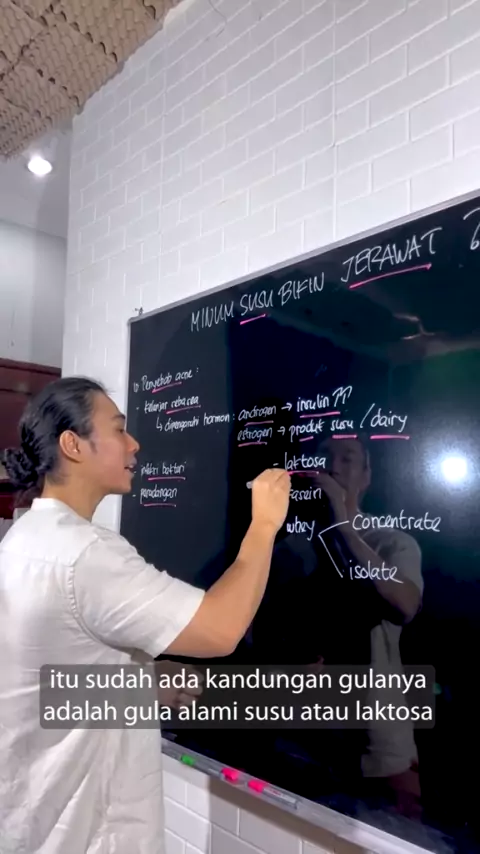 MINUM SUSU BIKIN JERAWAT ?
Penyebab acne :
- Kelenjar sebacea
↳ dipengaruhi hormon : androgen → insulin ↑↑
estrogen → produk susu / dairy
- infeksi bakteri
- peradangan
- laktosa
kasein
whey
concentrate
isolate
itu sudah ada kandungan gulanya
adalah gula alami susu atau laktosa